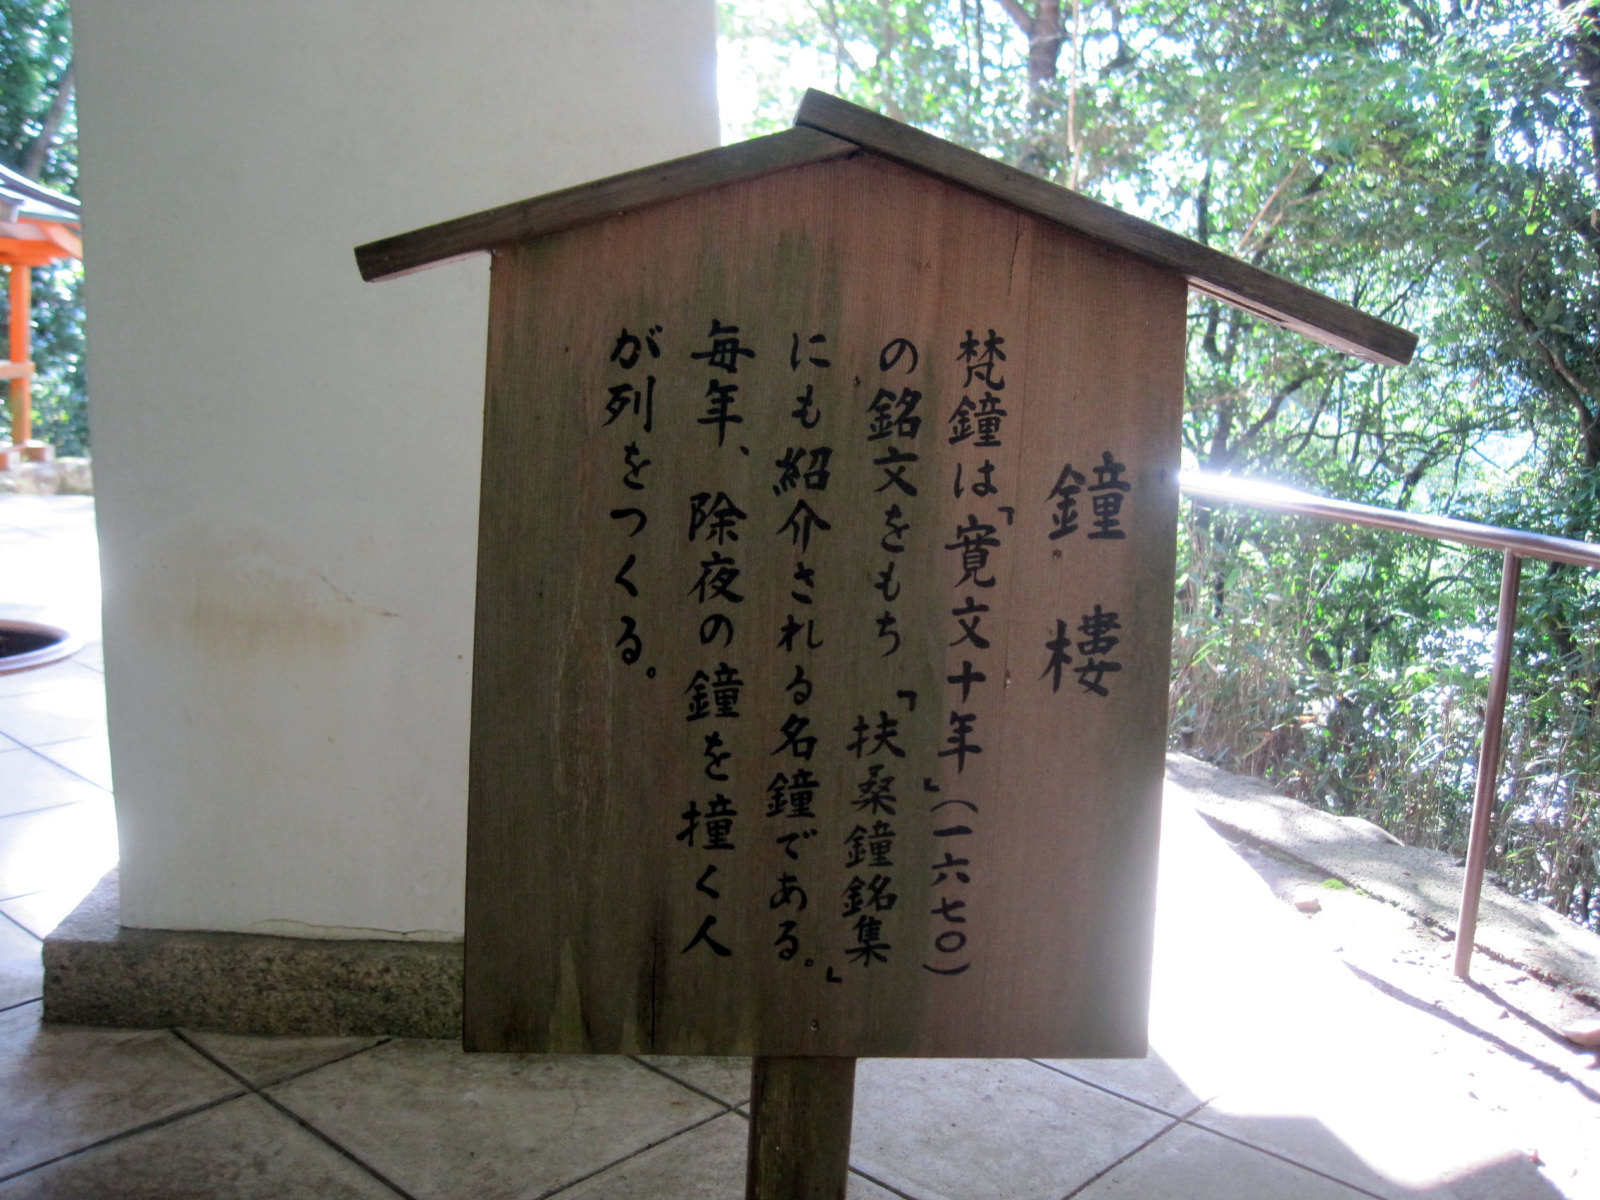 鐘楼
梵鐘は「寛文十年」(一六七〇)
の銘文をもち「扶桑鐘銘集」
にも紹介される名鐘である。
毎年、除夜の鐘を撞く人
が列をつくる。